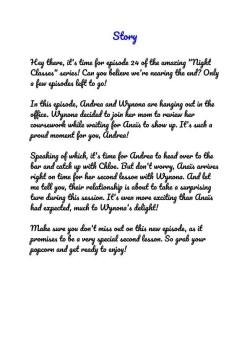 Story
Hey there, it's time for episode 24 of the amazing "Night
Classes" series! Can you believe we're nearing the end? Only
a few episodes left to go!
In this episode, Andrea and Wynona are hanging out in the
office. Wynona decided to join her mom to review her
coursework while waiting for Anaïs to show up. It's such a
proud moment for you, Andrea!
Speaking of which, it's time for Andrea to head over to the
bar and catch up with Chloe. But don't worry, Anaïs arrives
right on time for her second lesson with Wynona. And let
me tell you, their relationship is about to take a surprising
turn during this session. It's even more exciting than Anaïs
had expected, much to Wynona's delight!
Make sure you don't miss out on this new episode, as it
promises to be a very special second lesson. So grab your
popcorn and get ready to enjoy!